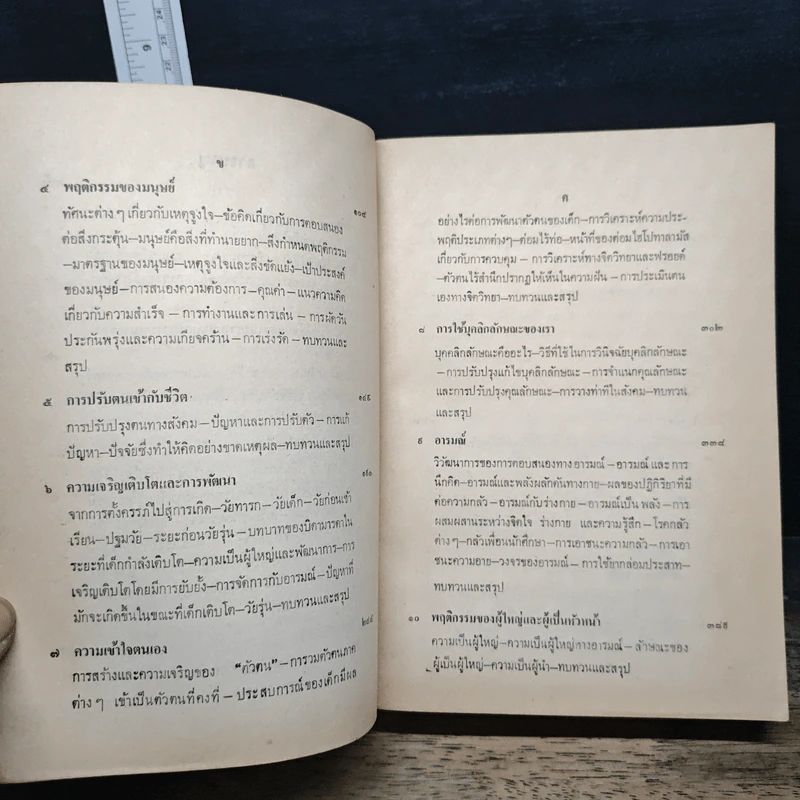 ข
๔ พฤติกรรมของมนุษย์ ๑๐๔
ทัศนะต่าง ๆ เกี่ยวกับเหตุจูงใจ—ข้อคิดเกี่ยวกับการตอบสนอง
ต่อสิ่งกระตุ้น—มนุษย์คือสิ่งที่ทำนายยาก—สิ่งกำหนดพฤติกรรม
—มาตรฐานของมนุษย์—เหตุจูงใจและสิ่งขัดแย้ง—เป้าประสงค์
ของมนุษย์—การสนองความต้องการ—คุณค่า—แนวความคิด
เกี่ยวกับความสำเร็จ—การทำงานและการเล่น—การผัดวัน
ประกันพรุ่งและความเกียจคร้าน—การเร่งรัด—ทบทวนและ
สรุป
๕ การปรับตนเข้ากับชีวิต ๑๔๕
การปรับปรุงตนทางสังคม—ปัญหาและการปรับตัว—การแก้
ปัญหา—ปัจจัยซึ่งทำให้คิดอย่างขาดเหตุผล—ทบทวนและสรุป
๖ ความเจริญเติบโตและการพัฒนา
จากการตั้งครรภ์ไปสู่การเกิด—วัยทารก—วัยเด็ก—วัยก่อนเข้า
เรียน—ปฐมวัย—ระยะก่อนวัยรุ่น—บทบาทของบิดามารดาใน
ระยะที่เด็กกำลังเติบโต—ความเป็นผู้ใหญ่และพัฒนาการ—การ
เจริญเติบโตโดยมีการยับยั้ง—การจัดการกับอารมณ์—ปัญหาที่
มักจะเกิดขึ้นในขณะที่เด็กเติบโต—วัยรุ่น—ทบทวนและสรุป
๗ ความเข้าใจตนเอง
การสร้างและความเจริญของ “ตัวตน”—การรวมตัวตนภาค
ต่าง ๆ เข้าเป็นตัวตนที่คงที่—ประสบการณ์ของเด็กมีผล
ค
อย่างไรต่อการพัฒนาตัวตนของเด็ก—การวิเคราะห์ความประ-
พฤติประเภทต่างๆ—ต่อมไร้ท่อ—หน้าที่ของต่อมไฮโปทาลามัส
เกี่ยวกับการควบคุม—การวิเคราะห์ทางจิตวิทยาและฟรอยด์
—ตัวตนไร้สำนึกปรากฏให้เห็นในความฝัน—การประเมินตน
เองทางจิตวิทยา—ทบทวนและสรุป
๘ การใช้บุคลิกลักษณะของเรา ๓๐๒
บุคลิกลักษณะคืออะไร—วิธีที่ใช้ในการวินิจฉัยบุคลิกลักษณะ
—การปรับปรุงแก้ไขบุคลิกลักษณะ—การจำแนกคุณลักษณะ
และการปรับปรุงคุณลักษณะ—การวางท่าทีในสังคม—ทบทวน
และสรุป
๙ อารมณ์ ๓๓๘
วิวัฒนาการของการตอบสนองทางอารมณ์—อารมณ์และการ
นึกคิด—อารมณ์และพลังผลักดันทางกาย—ผลของปฏิกิริยาที่มี
ต่อความกลัว—อารมณ์กับร่างกาย—อารมณ์เป็นพลัง—การ
ผสมผสานระหว่างจิตใจ ร่างกาย และความรู้สึก—โรคกลัว
ต่างๆ—กลัวเพื่อนนักศึกษา—การเอาชนะความกลัว—การเอา
ชนะความอาย—วงจรของอารมณ์—การใช้ยากล่อมประสาท—
ทบทวนและสรุป
๑๐ พฤติกรรมของผู้ใหญ่และผู้เป็นหัวหน้า ๓๘๕
ความเป็นผู้ใหญ่—ความเป็นผู้ใหญ่ทางอารมณ์—ลักษณะของ
ผู้เป็นผู้ใหญ่—ความเป็นผู้นำ—ทบทวนและสรุป